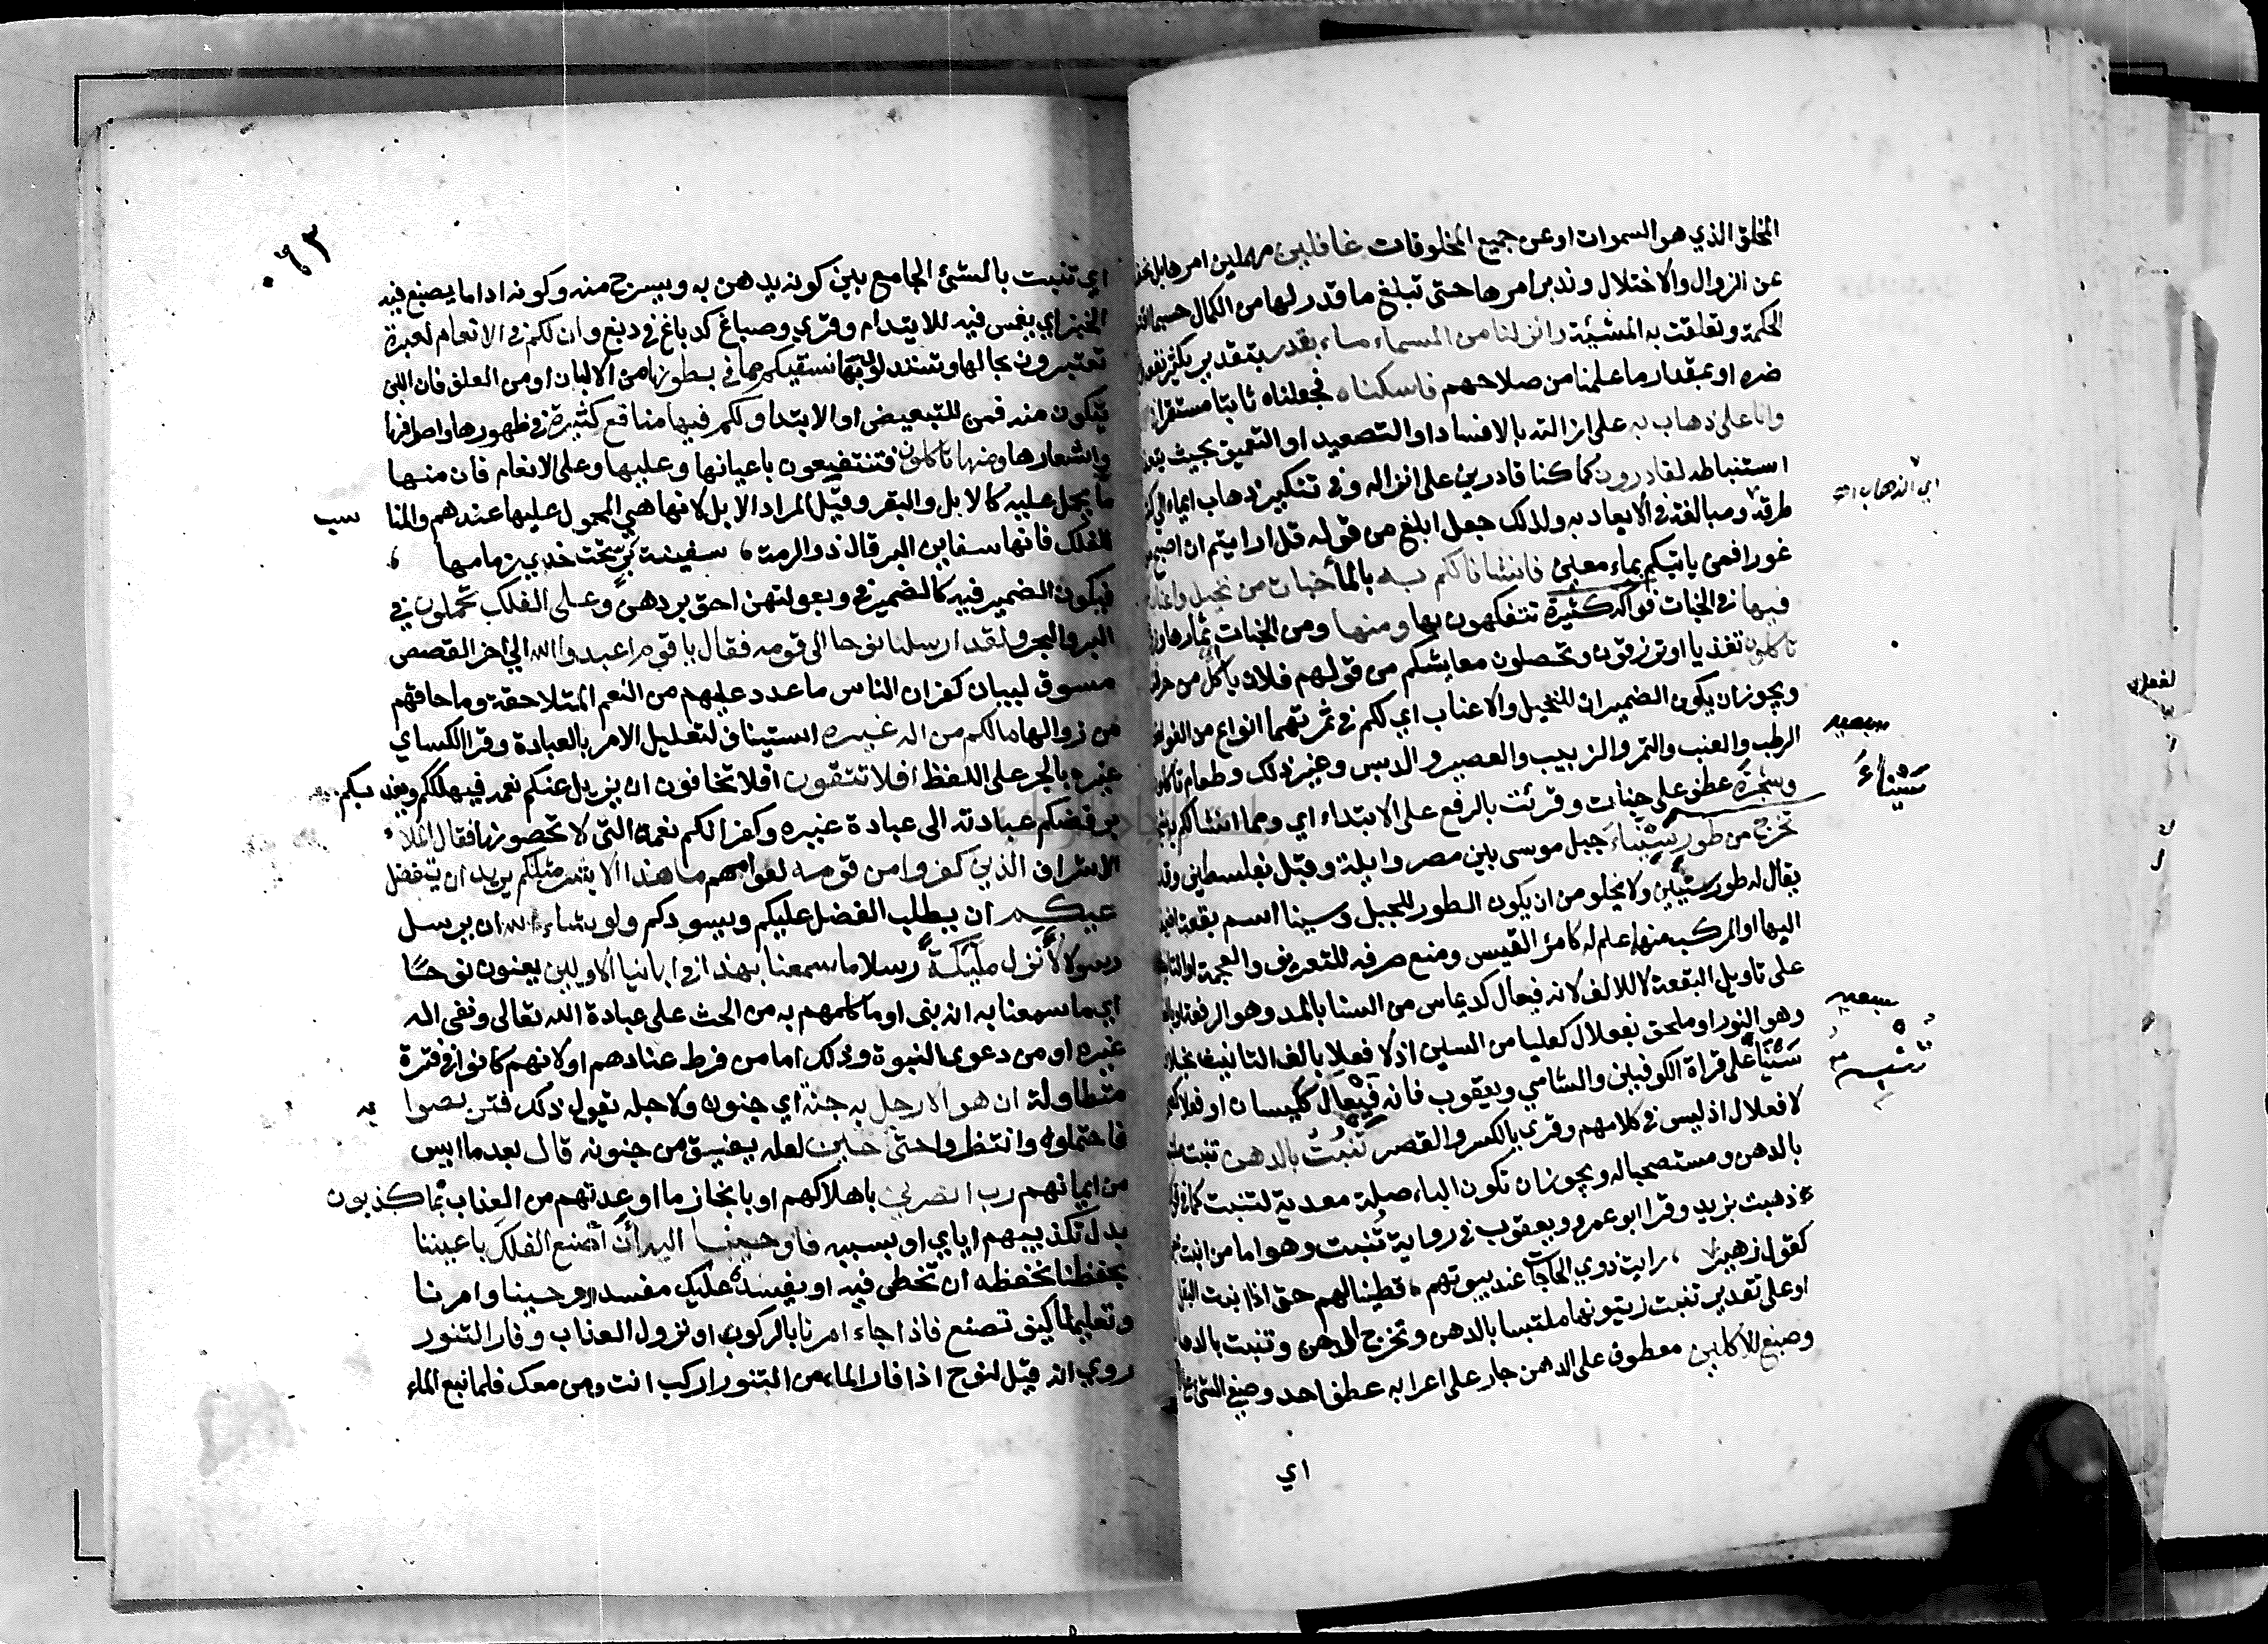 الخلق الذي هو السموات او عن جميع المخلوقات غافلين مهملين امرها بل نحفظها
عن الزوال والاختلال وندبر امرها حتى تبلغ ما قدر لها من الكمال حسبما اقتضته
الحكمة وتعلقت به المشيئة وانزلنا من السماء ماء بقدر بتقدير يكثر نفعه
ضره او بمقدار ما علمنا من صلاحهم فاسكناه فجعلناه ثابتا مستقرا
وانا على ذهاب به على ازالته بالافساد او التصعيد او التعميق بحيث يتعذر
استنباطه لقادرون كما كنا قادرين على انزاله وفي تنكير ذهاب ايماء الى كثرة
طرقه ومبالغة في الايعاد به ولذلك جعل ابلغ من قوله قل ارايتم ان اصبح
غورا فمن ياتيكم بماء معين فانشانا لكم به بالماء جنات من نخيل واعناب
فيها في الجنات فواكه كثيرة تتفكهون بها ومنها ومن الجنات ثمارها
تاكلون تغذيا او ترزقون وتحصلون معايشكم من قولهم فلان ياكل من
ويجوزان يكون الضميران للنخيل والاعناب اي لكم في ثمرتهما انواع من الفواكه
الرطب والعنب والتمر والزبيب والعصير والدبس وغير ذلك وطعام تاكلونه
وشجرة عطف على جنات وقرئت بالرفع على الابتداء اي ومما انشا لكم به
تخرج من طور سيناء جبل موسى بين مصر وايلة وقيل بفلسطين وقد
يقال له طور سينين ولا يخلو من ان يكون الطور للجبل وسينا اسم بقعة اضيف
اليها او المركب منها علم له كامرء القيس ومنع صرفه للتعريف والعجمة او التانيث
على تاويل البقعة لا للالف لانه فيعال كديماس من السنا بالمد وهو الرفعة
وهو النور او ملحق بفعلال كعلبا من السين اذ لا فعلا بالف التانيث بخلاف
سيناء على قراة الكوفيين والشامي ويعقوب فانه فيعال ككيسان او فعلا
لا فعلال اذ ليس في كلامهم وقرئ بالكسر والقصر تنبت بالدهن تنبت
بالدهن ومستصحبا له ويجوزان تكون الباء صلة معدية لتنبت كما في
ذهبت بزيد وقرا ابو عمرو ويعقوب في رواية تنبت وهو اما من انبت
كقول زهير رايت ذوي الحاجات عند بيوتهم قطينا لهم حتى اذا انبت البقل
او على تقدير تنبت زيتونها ملتبسا بالدهن وتخرج الدهن وتنبت بالدهان
وصبغ للآكلين معطوف على الدهن جار على اعرابه عطف احد وصفي الشئ
اي
اي الذهاب
سعيد
سيناء
سعيد
لفعل
٠٦٣
اي تنبت بالشئ الجامع بين كونه يدهن به ويسرج منه وكونه اداما يصبغ فيه
الخبز اي يغمس فيه للايتدام وقرئ وصباغ كدباغ في دبغ وان لكم في الانعام لعبرة
تعتبرون بحالها وتستدلون بها نسقيكم مما في بطونها من الالبان او من العلف فان اللبن
يتكون منه فمن للتبعيض او الابتدا ولكم فيها منافع كثيرة في ظهورها واصوافها
واشعارها ومنها تاكلون فتنتفيعون باعيانها وعليها وعلى الانعام فان منها
ما يحمل عليه كالابل والبقر وقيل المراد الابل لانها هي المحمول عليها عندهم والمنا سب
للفلك فانها سفاين البر قال ذو الرمة سفينة بر تحت خدي زمامها
فيكون الضمير فيه كالضمير في وبعولتهن احق بردهن وعلى الفلك تحملون في
البر والبحر ولقد ارسلنا نوحا الى قومه فقال يا قوم اعبدوا الله الى اخر القصص
مسوق لبيان كفران الناس ما عدد عليهم من النعم المتلاحقة وما حاقهم
من زوالها مالكم من اله غيره استيناف لتعليل الامر بالعبادة وقرا الكساي
غيره بالجر على اللفظ افلا تتقون افلا تخافون ان يزيل عنكم نعمه فيهلككم ويعذبكم
برفضكم عبادته الى عبادة غيره وكفرانكم نعمه التي لا تحصونها فقال الملاء
الاشراف الذين كفروا من قومه لعوامهم ما هذا الا بشر مثلكم يريد ان يتفضل
عليكم ان يطلب الفضل عليكم ويسودكم ولو شاء الله ان يرسل
رسولا لأنزل مليكة رسلا ما سمعنا بهذا في ابائنا الاولين يعنون نوحا
اي ما سمعنا به انه نبى او ما كلمهم به من الحث على عبادة الله تعالى ونفى اله
غيره او من دعوى النبوة وذلك اما من فرط عنادهم او لانهم كانوا في فترة
متطاولة ان هو الا رجل به جنة اي جنون ولاجله يقول ذلك فتربصوا به
فاحتملوه وانتظروا حتى حين لعله يفيق من جنونه قال بعد ما ايس
من ايمانهم رب انصرني باهلاكهم او بانجاز ما اوعدتهم من العذاب بما كذبون
بدل تكذيبهم اياي او بسببه فاوحينا اليه أن اصنع الفلك باعيننا
بحفظنا نحفظه ان تخطى فيه او يفسده عليك مفسد ووحينا وامرنا
وتعليمنا كيف تصنع فاذا جاء امرنا بالركوب او نزول العذاب وفار التنور
روي انه قيل لنوح اذا فار الماء من التنور اركب انت ومن معك فلما نبع الماء